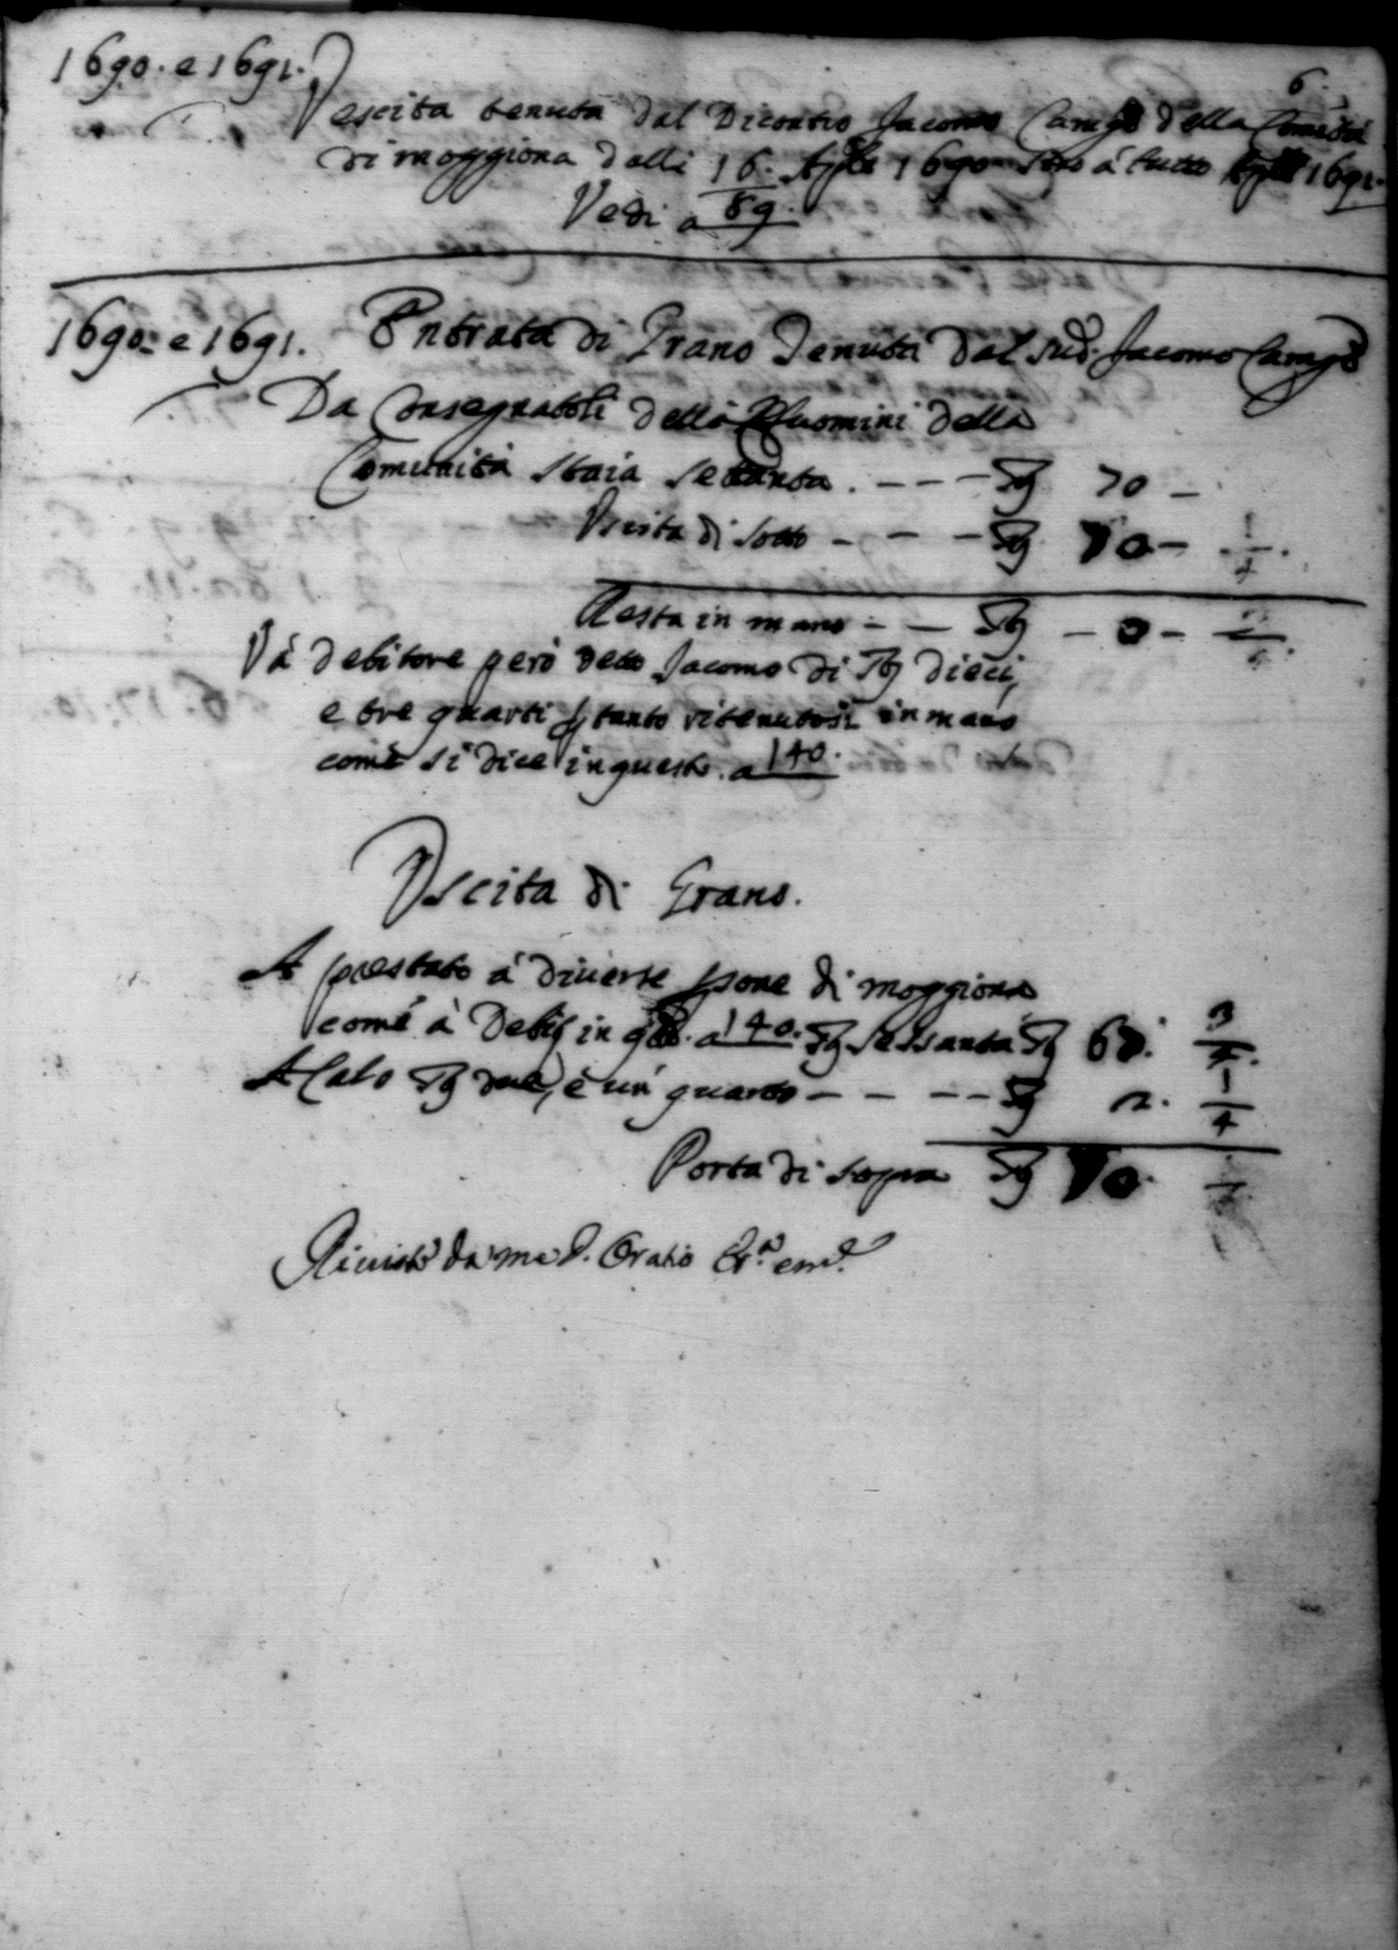 6.
1690. e 1691.
Vescita tenuta dal Dicontro Jacomo della Comunità
di moggiona dalli 16. Aple 1690 sino à tutto Aple 1691.
Vedi a 89.
1690. e 1691. Entrata di Grano Tenuta dal sud.o Jacomo
Da Consegnatoli delli Huomini della
Comunità staia settanta. - - - Sg 70 -
Vscita di sotto - - - Sg 70 - 1/4.
Resta in mano - - Sg - 0 -
Và debitore però detto Jacomo di Sg dieci,
e tre quarti p tanto ritenutosi in mano
come si dice in questo. a 140.
Vscita di Grano.
A prestato à diuerse psone di moggiona
come à Debit in qto. a 140. Sg sessanta Sg 60. 3/4.
A Calo Sg due, e un quarto - - - - Sg 2. 1/4
Porta di sopra Sg 70.
Riuisto da me D. Oratio